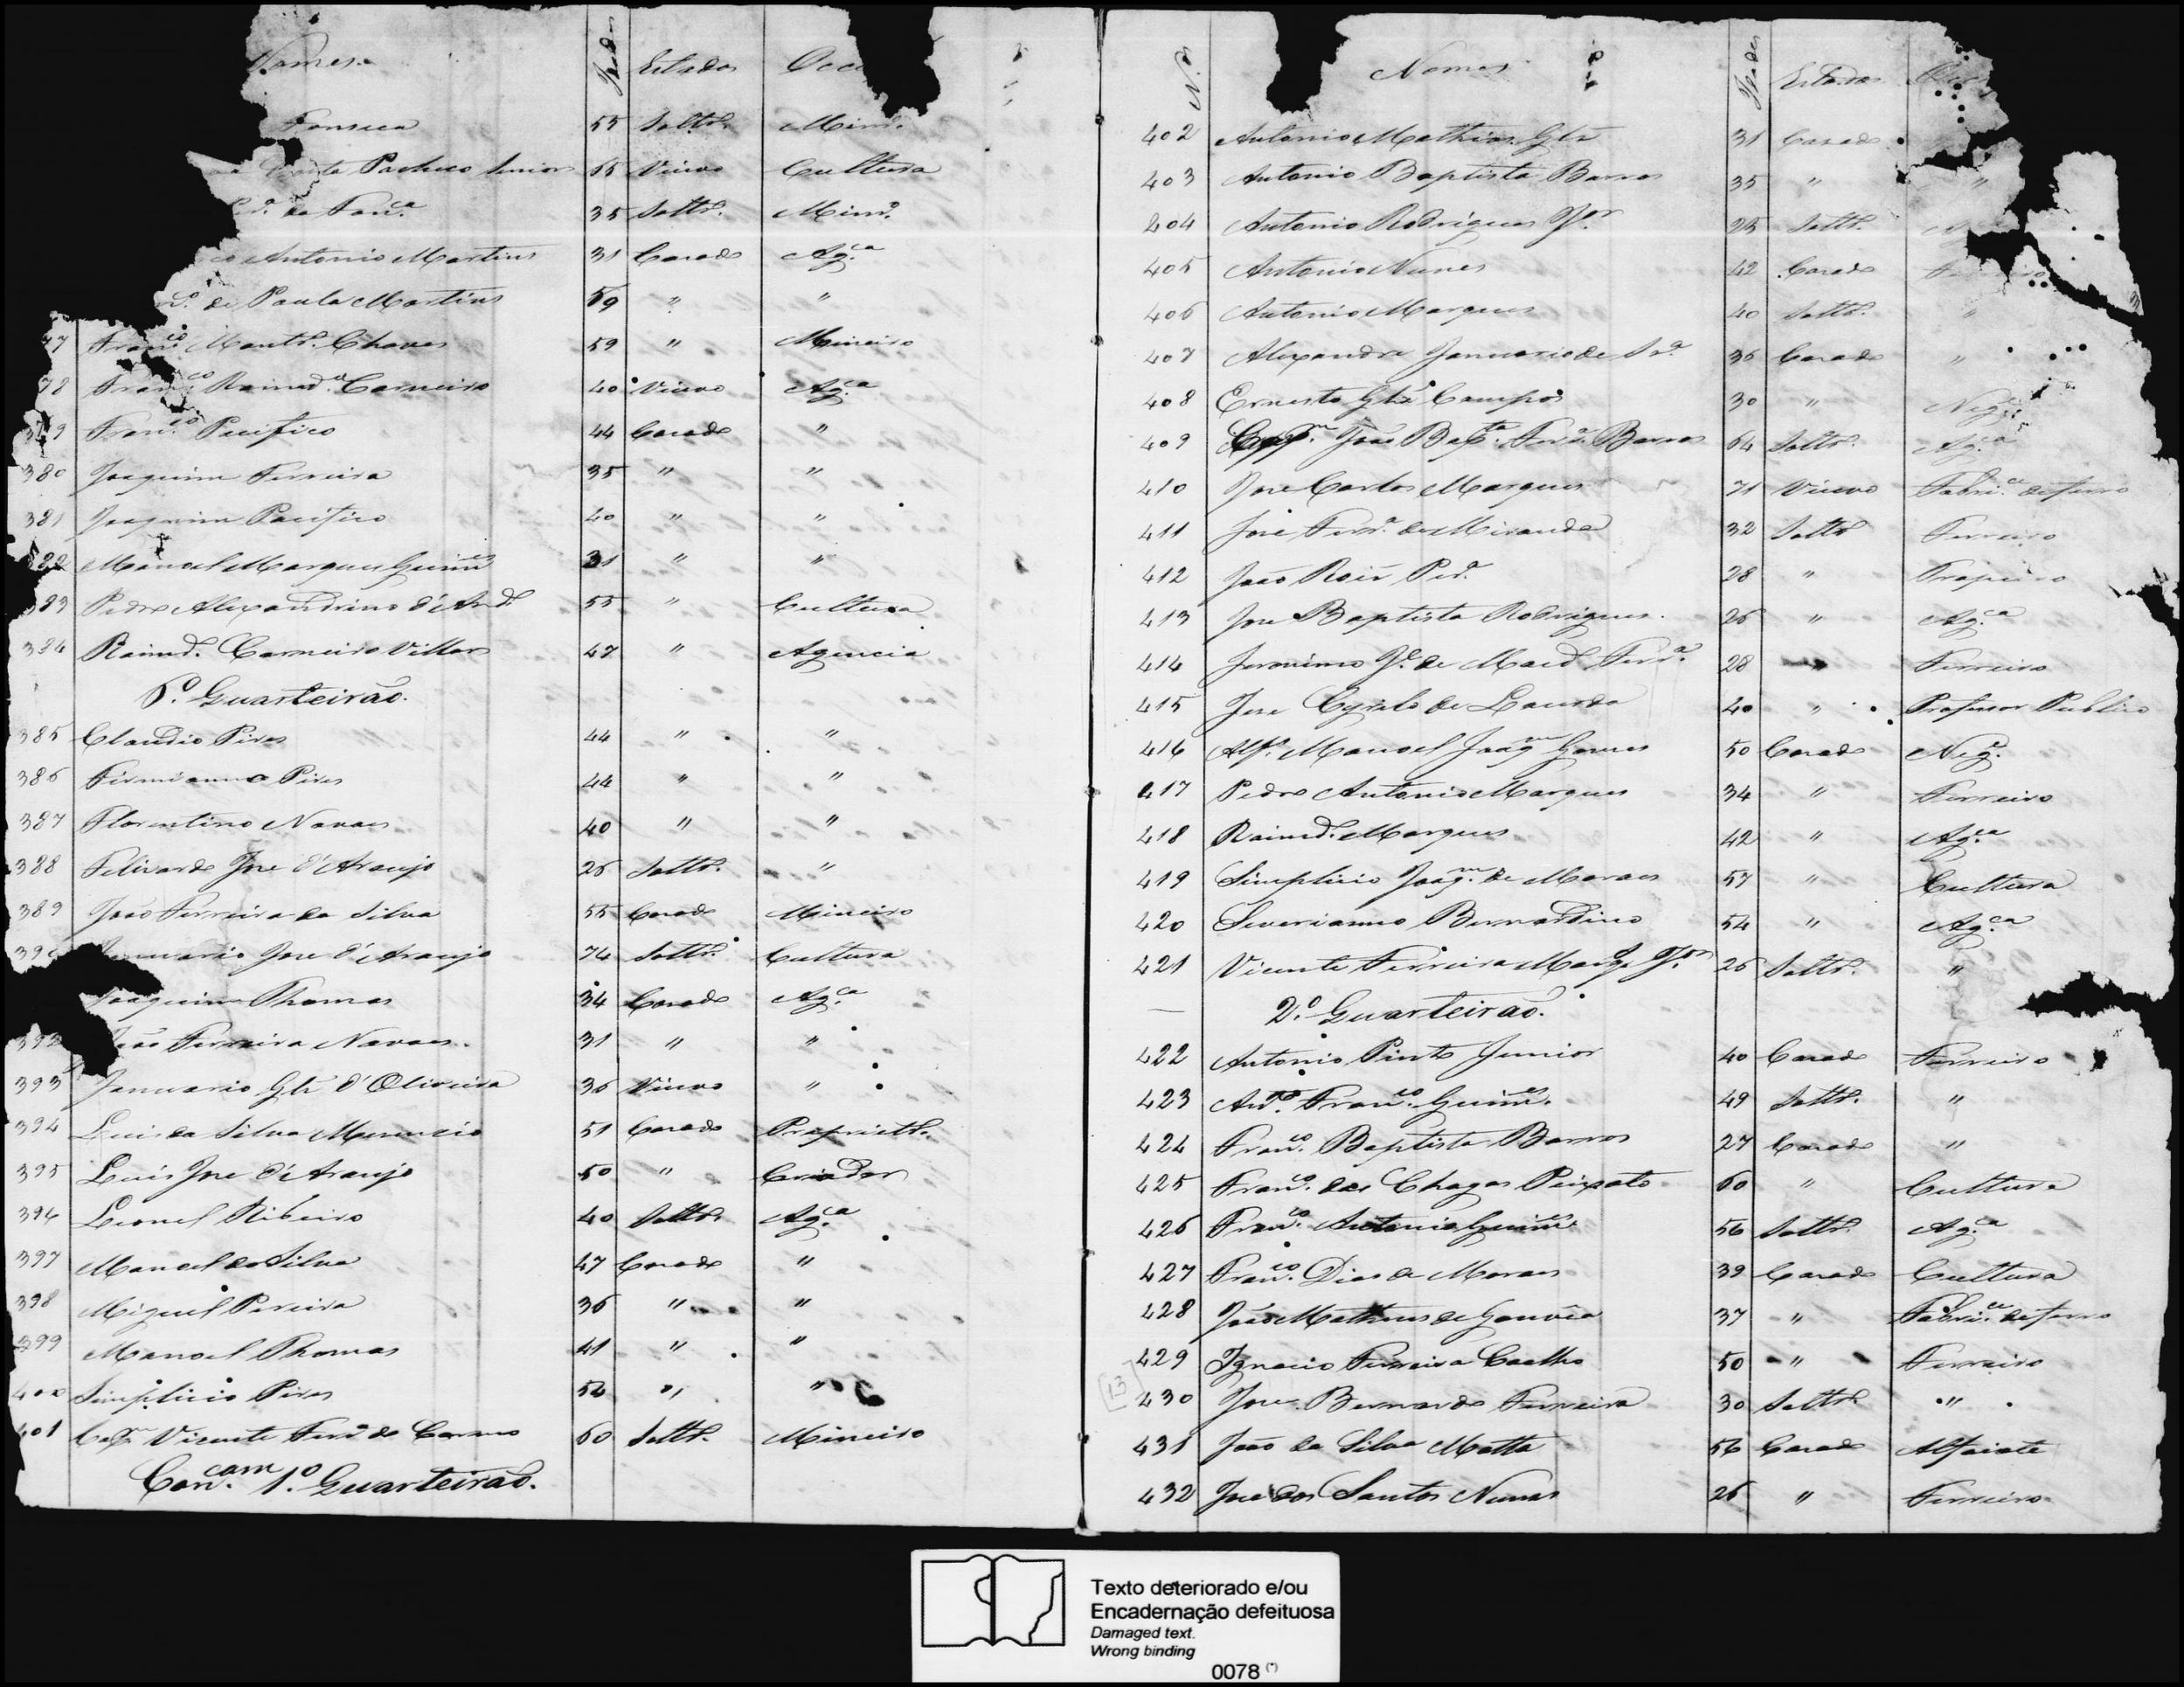 Nomes Idades Estados Occ
Fonseca 55 Soltº. Minº.
Costa Pacheco Junior 65 Viuvo Cultura
da Fonᶜᵃ 35 Soltº. Minº.
Antonio Martins 31 Casado Ag.ᶜᵃ
de Paula Martins 59 " "
77 Franᶜᵒ Montº. Chaves 59 " Mineiro
78 Franᶜᵒ Raimdº. Carneiro 40 Viuvo Ag.ᶜᵃ
379 Franᶜᵒ Pacifico 44 Casado "
380 Joaquim Ferreira 35 " "
381 Joaquim Pacifico 40 " "
382 Manoel Marques Guimᵉˢ 31 " "
383 Pedro Alexandrino d'Andᵉ 55 " Cultura
384 Raimdº. Carneiro Villar 47 " Agencia
6º. Quarteirão.
385 Claudio Pires 44 " "
386 Firmianno Pires 44 " "
387 Florentino Navaes 40 " "
388 Felisardo Jose d'Araujo 26 Soltº. "
389 João Ferreira da Silva 55 Casado Mineiro
390 Januario Jose d'Araujo 74 Soltº. Cultura
Joaquim Thomas 34 Casado Ag.ᶜᵃ
392 João Ferreira Navaes. 31 " "
393 Januario Glz d'Oliveira 36 Viuvo "
394 Luis da Silva 51 Casado Proprietº.
395 Luis Jose d'Araujo 50 " Criador
396 Leonel Ribeiro 40 Soltº Ag.ᶜᵃ
397 Manoel da Silva 47 Casado "
398 Miguel Pereira 36 " "
399 Manoel Thomas 41 " "
400 Simplicio Pires 52 " "
401 Capᵐ Vicente Ferrª do Carmo 60 Soltº. Mineiro
Conᶜᵃᵐ 1º. Quarteirão.
N.os Nomes Idades Estados
402 Antonio Mathias Glz 31 Casado
403 Antonio Baptista Barros 35 " "
404 Antonio Rodrigues Jᵒʳ 25 Soltº.
405 Antonio Nunes 42 Casado
406 Antonio Marques 40 Soltº. "
407 Alexandre Januario de Sᶻᵃ 36 Casado "
408 Ernesto Glz Campos 30 " Neg.
409 Capᵐ João Bapᵗᵃ Ferrª Barros 64 Soltº. Ag.ᶜᵃ
410 Jose Carlos Marques 71 Viuvo Fabriᶜᵃ de ferro
411 Jose Ferrª. de Miranda 32 Soltº Ferreiro
412 João Roiz Perª 28 " Tropeiro
413 Jose Baptista Rodrigues. 26 " Ag.ᶜᵃ
414 Jeronimo Jᵉ. de Macdº Ferrª. 28 " Ferreiro
415 Jose Cyrilo de Lacerda 40 " Professor Publico
416 Alfᵉˢ. Manoel Joaqᵐ Gomes 50 Casado Negᵉ.
417 Pedro Antonio Marques 34 " Ferreiro
418 Raimdº. Marques 42 " Ag.ᶜᵃ
419 Simplicio Joaqᵐ. de Moraes 57 " Cultura
420 Severianno Bernardino 54 " Ag.ᶜᵃ
421 Vicente Ferreira Marqˢ Jᵒʳ 26 Soltº. "
2º. Quarteirão.
422 Antonio Pinto Junior 40 Casado Ferreiro
423 Antº. Franᶜᵒ. Guimᵉˢ. 49 Soltº. "
424 Franᶜᵒ. Baptista Barros 27 Casado "
425 Franᶜᵒ. das Chagas Peixoto 60 " Cultura
426 Franᶜᵒ. Antonio Guimᵉˢ 56 Soltº. Ag.ᶜᵃ
427 Franᶜᵒ. Dias de Moraes 39 Casado Cultura
428 João Matheus de Gouvêa 37 " Fabriᶜᵃ de ferro
429 Ignacio Ferreira Coelho 50 " Ferreiro
[13]
430 Jose Bernardo Ferreira 30 Soltº "
431 João da Silva Motta 56 Casado Alfaiate
432 Jose dos Santos Nunes 26 " Ferreiro
Texto deteriorado e/ou
Encadernação defeituosa
Damaged text.
Wrong binding
0078 (*)